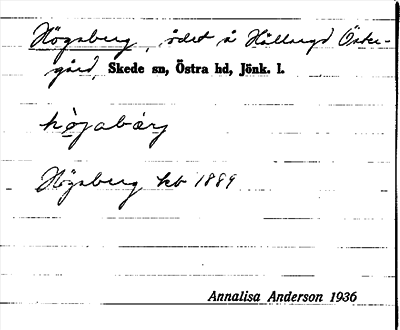 Högaberg, ödet å Hållaryd Öster-
gård, Skede sn, Östra hd, Jönk. l.
hö̀jabærj
Högaberg kb 1889
Annalisa Anderson 1936